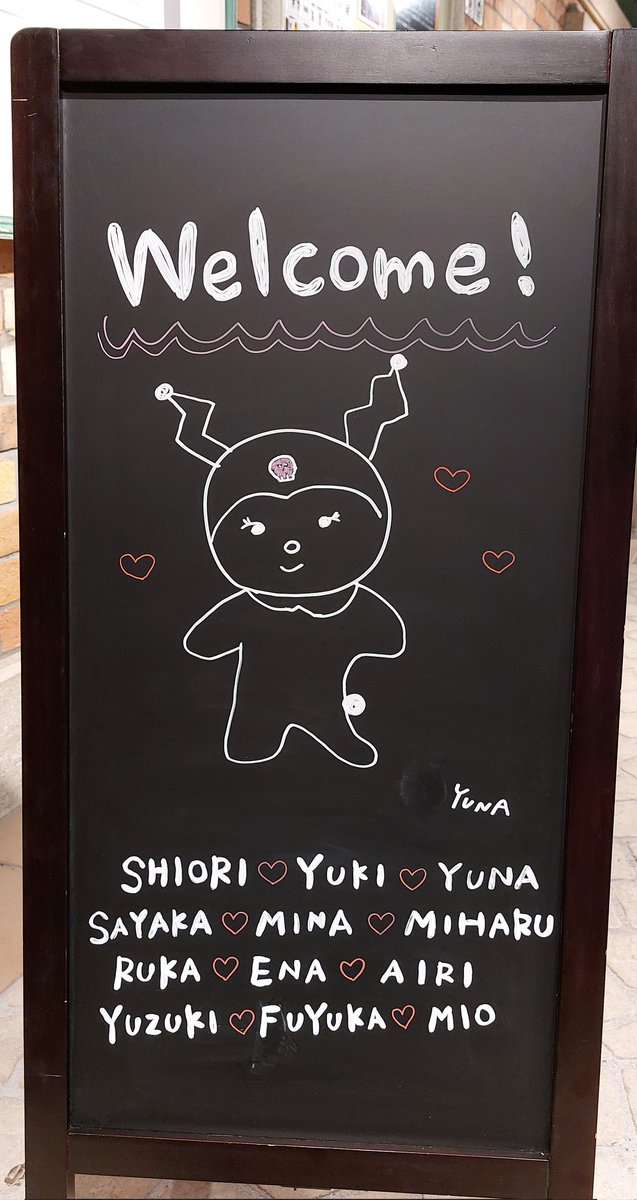 Welcome!
YUNA
SHIORI ♡ YUKI ♡ YUNA
SAYAKA ♡ MINA ♡ MIHARU
RUKA ♡ ENA ♡ AIRI
YUZUKI ♡ FUYUKA ♡ MIO